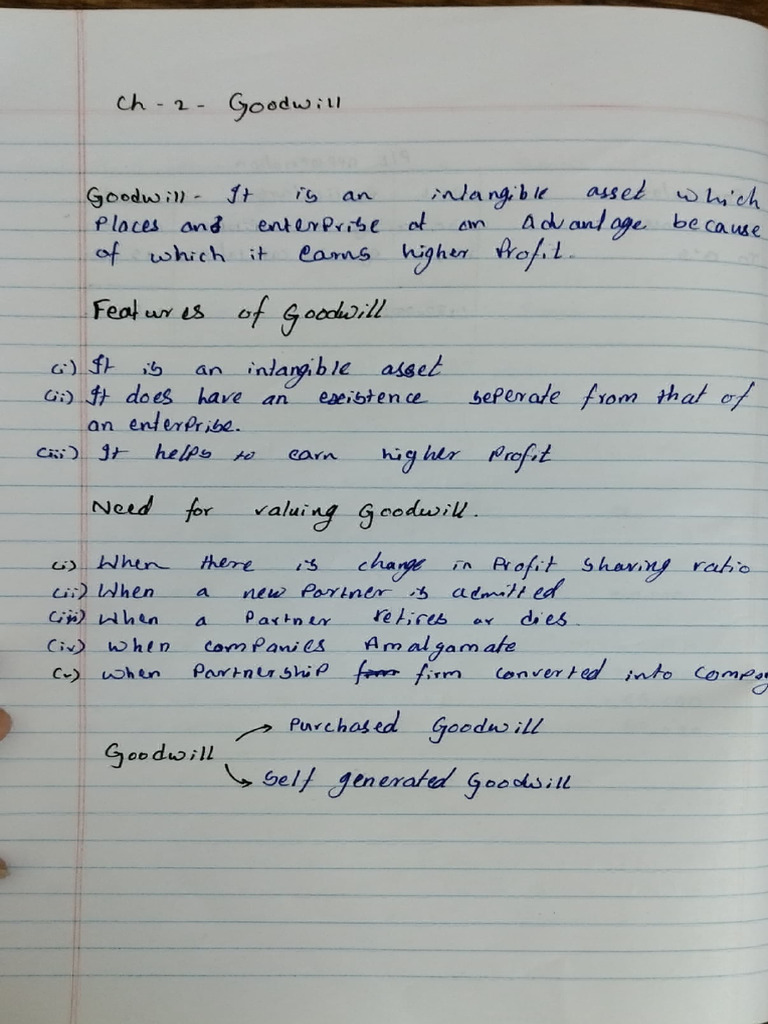 Ch - 2 - Goodwill
Goodwill - It is an intangible asset which
places and enterprise at an advantage because
of which it earns higher profit.
Features of Goodwill
(i) It is an intangible asset
(ii) It does have an exeistence seperate from that of
an enterprise.
(iii) It helps to earn higher profit
Need for valuing Goodwill.
(i) When there is change in Profit sharing ratio
(ii) When a new Partner is admitted
(iii) When a Partner retires or dies.
(iv) When companies Amalgamate
(v) When Partnership firm converted into Compa
Goodwill → Purchased Goodwill
↘ Self generated Goodwill